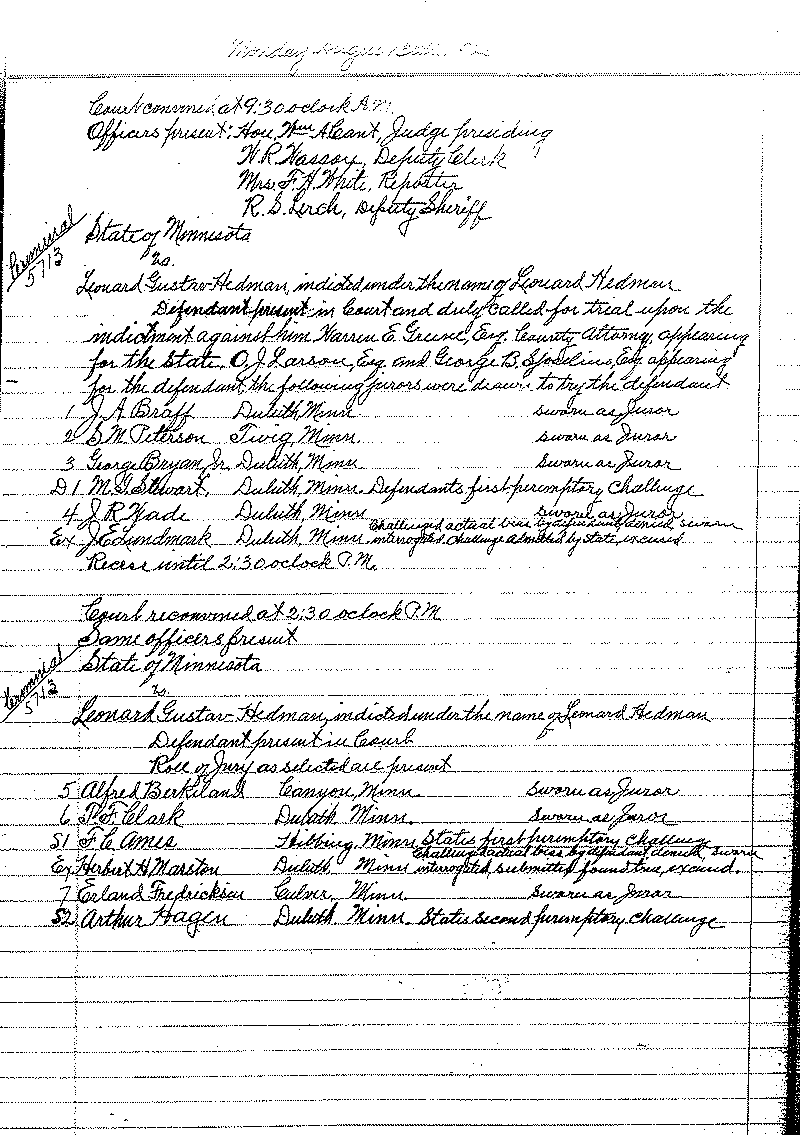 Monday August 15th
Court convened at 9:30 oclock A.M.
Officers present: Hon. Wm A Cant, Judge presiding
Deputy Clerk
Mrs. F. H. White, Reporter
R. S. Lerch, Deputy Sheriff
Criminal
5713
State of Minnesota
vs.
Leonard Gustav Hedman, indicted under the name of Leonard Hedman
Defendant present in Court and duly called for trial upon the
indictment against him Warren E. Greene, Esq. County Attorney, appearing
for the State, O. J. Larson, Esq. and George B. Esq appearing
for the defendant, the following jurors were drawn to try the defendant
1 J. A. Braff Duluth Minn sworn as Juror
2 S. M. Peterson Twig, Minn. sworn as Juror
3 George Bryan Jr. Duluth, Minn. sworn as Juror
D1 M. G. Stewart, Duluth, Minn. Defendants first peremptory challenge
4 J. R. Duluth, Minn sworn as Juror
Ex J. Edundmark Duluth Minn Challenged actual bias by defendant, denied, sworn
interrogated, challenge admitted by state, excused
Recess until 2:30 oclock P.M.
Court reconvened at 2:30 oclock P.M
Same officers present
Criminal
5713
State of Minnesota
vs.
Leonard Gustav Hedman, indicted under the name of Leonard Hedman
Defendant present in Court
Roll of Jury as selected all present
5 Alfred Berkeland Canyon, Minn. sworn as Juror
6 P. F. Clark Duluth Minn. sworn as Juror
S1 F. C. Ames Hibbing, Minn. States first peremptory challenge
Ex Herbert H. Marston Duluth Minn Challenged actual bias by defendant, denied, sworn
interrogated, submitted, found true, excused.
7 Erland Fredrickson Culver, Minn. sworn as Juror
S2 Arthur Hagen Duluth. Minn. States second peremptory challenge